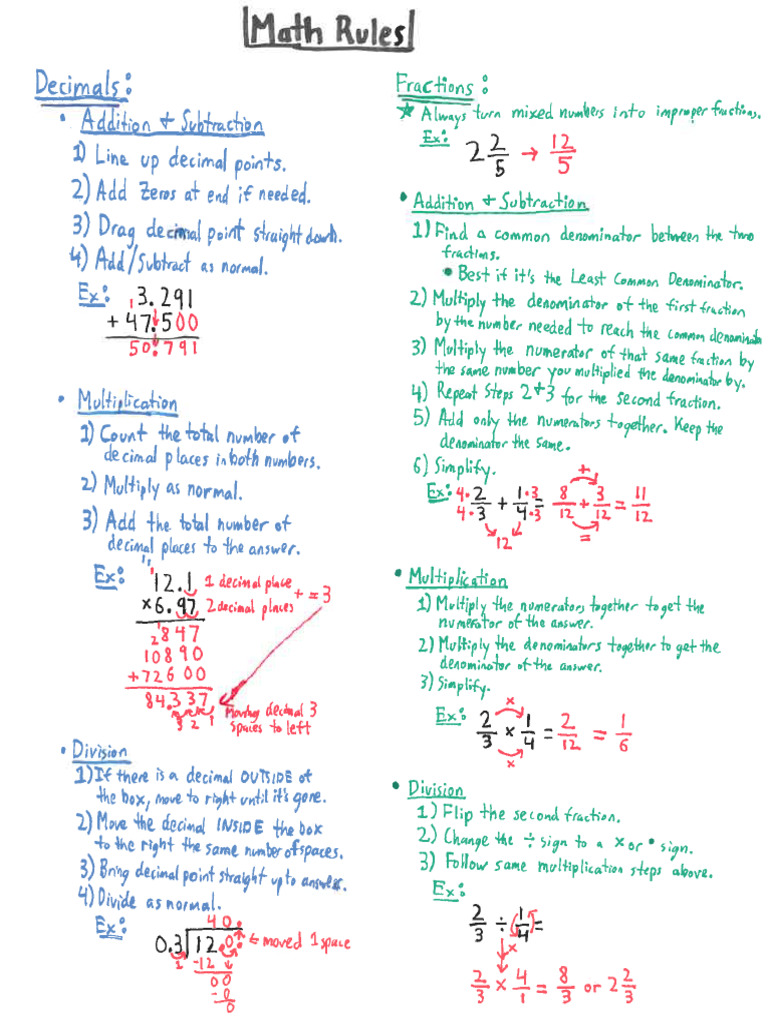 Math Rules
Decimals:
• Addition & Subtraction
1) Line up decimal points.
2) Add Zeros at end if needed.
3) Drag decimal point straight down.
4) Add/Subtract as normal.
Ex: 1 3.291
+ 47.500
50.791
• Multiplication
1) Count the total number of
decimal places in both numbers.
2) Multiply as normal.
3) Add the total number of
decimal places to the answer.
Ex: 12.1 1 decimal place
x 6.97 2 decimal places + = 3
847
10890
+72600
84.337
3 2 1
Moving decimal 3
spaces to left
• Division
1) If there is a decimal OUTSIDE of
the box, move to right until it's gone.
2) Move the decimal INSIDE the box
to the right the same number of spaces.
3) Bring decimal point straight up to answer.
4) Divide as normal.
Ex: 40.
0.3 12.0. ← moved 1 space
1 -12
00
-0
0
Fractions:
★ Always turn mixed numbers into improper fractions.
Ex: 2 2/5 → 12/5
• Addition & Subtraction
1) Find a common denominator between the two
fractions.
• Best if it's the Least Common Denominator.
2) Multiply the denominator of the first fraction
by the number needed to reach the common denominator
3) Multiply the numerator of that same fraction by
the same number you multiplied the denominator by.
4) Repeat Steps 2 & 3 for the second fraction.
5) Add only the numerators together. Keep the
denominator the same.
6) Simplify.
Ex: 4•2/4•3 + 1•3/4•3 = 8/12 + 3/12 = 11/12
12
+
=
• Multiplication
1) Multiply the numerators together to get the
numerator of the answer.
2) Multiply the denominators together to get the
denominator of the answer.
3) Simplify.
Ex: 2/3 x 1/4 = 2/12 = 1/6
x
x
• Division
1) Flip the second fraction.
2) Change the ÷ sign to a x or • sign.
3) Follow same multiplication steps above.
Ex:
2/3 ÷ 1/4 =
x
2/3 x 4/1 = 8/3 or 2 2/3